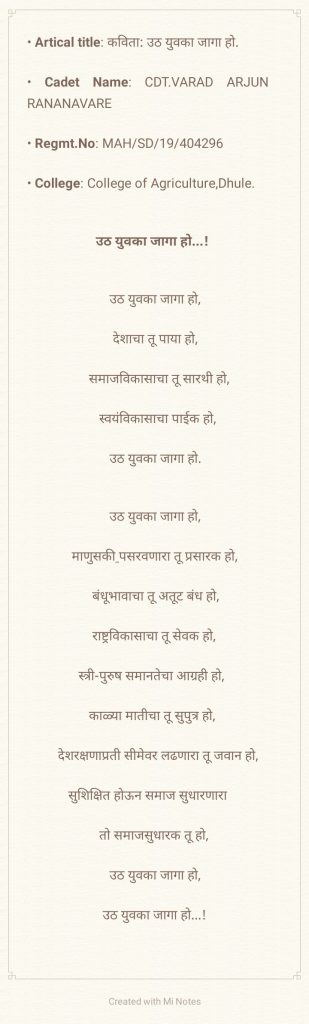 • Artical title: कविता: उठ युवका जागा हो.
• Cadet Name: CDT.VARAD ARJUN
RANANAVARE
• Regmt.No: MAH/SD/19/404296
• College: College of Agriculture,Dhule.
उठ युवका जागा हो...!
उठ युवका जागा हो,
देशाचा तू पाया हो,
समाजविकासाचा तू सारथी हो,
स्वयंविकासाचा पाईक हो,
उठ युवका जागा हो.
उठ युवका जागा हो,
माणुसकी पसरवणारा तू प्रसारक हो,
बंधूभावाचा तू अतूट बंध हो,
राष्ट्रविकासाचा तू सेवक हो,
स्त्री-पुरुष समानतेचा आग्रही हो,
काळ्या मातीचा तू सुपुत्र हो,
देशरक्षणाप्रती सीमेवर लढणारा तू जवान हो,
सुशिक्षित होऊन समाज सुधारणारा
तो समाजसुधारक तू हो,
उठ युवका जागा हो,
उठ युवका जागा हो...!
Created with Mi Notes